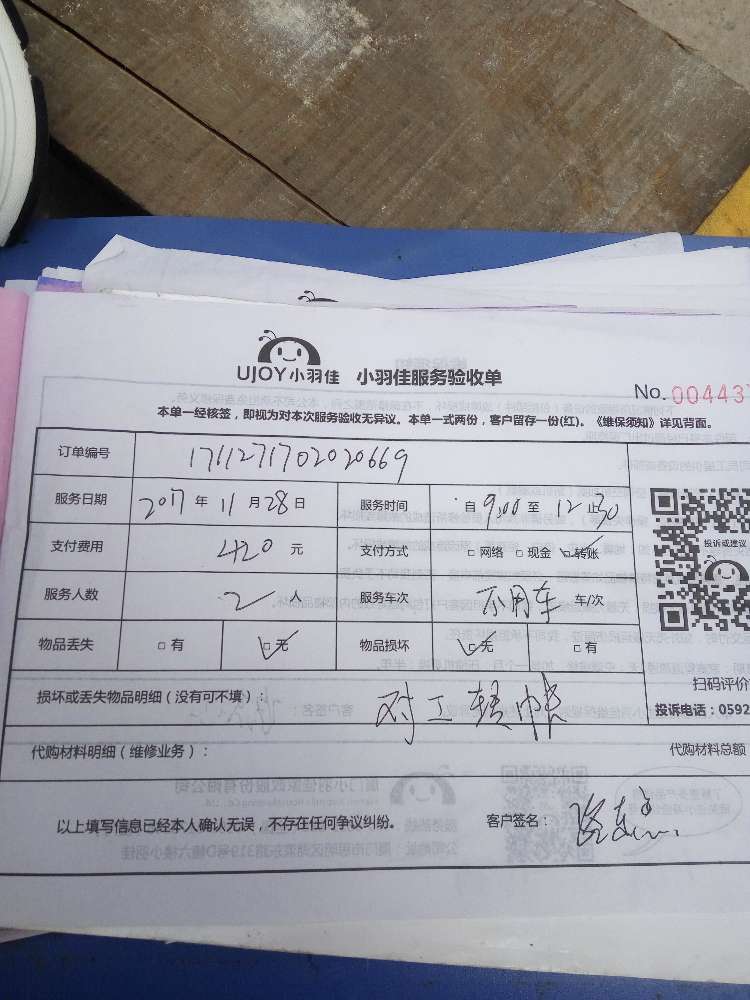 UJOY小羽佳 小羽佳服务验收单
No. 004437
本单一经核签，即视为对本次服务验收无异议。本单一式两份，客户留存一份(红)。《维保须知》详见背面。
订单编号 1711271702020669
服务日期 2017 年 11 月 28 日 服务时间 自 9:00 至 12:30
支付费用 420 元 支付方式 □ 网络 □ 现金 ☑ 转账
投诉或建议
服务人数 2 人 服务车次 不用车 车/次
物品丢失 □ 有 ☑ 无 物品损坏 ☑ 无 □ 有
扫码评价
损坏或丢失物品明细（没有可不填）： 对工转帐
投诉电话：0592
代购材料明细（维修业务）： 代购材料总额
以上填写信息已经本人确认无误，不存在任何争议纠纷。 客户签名：